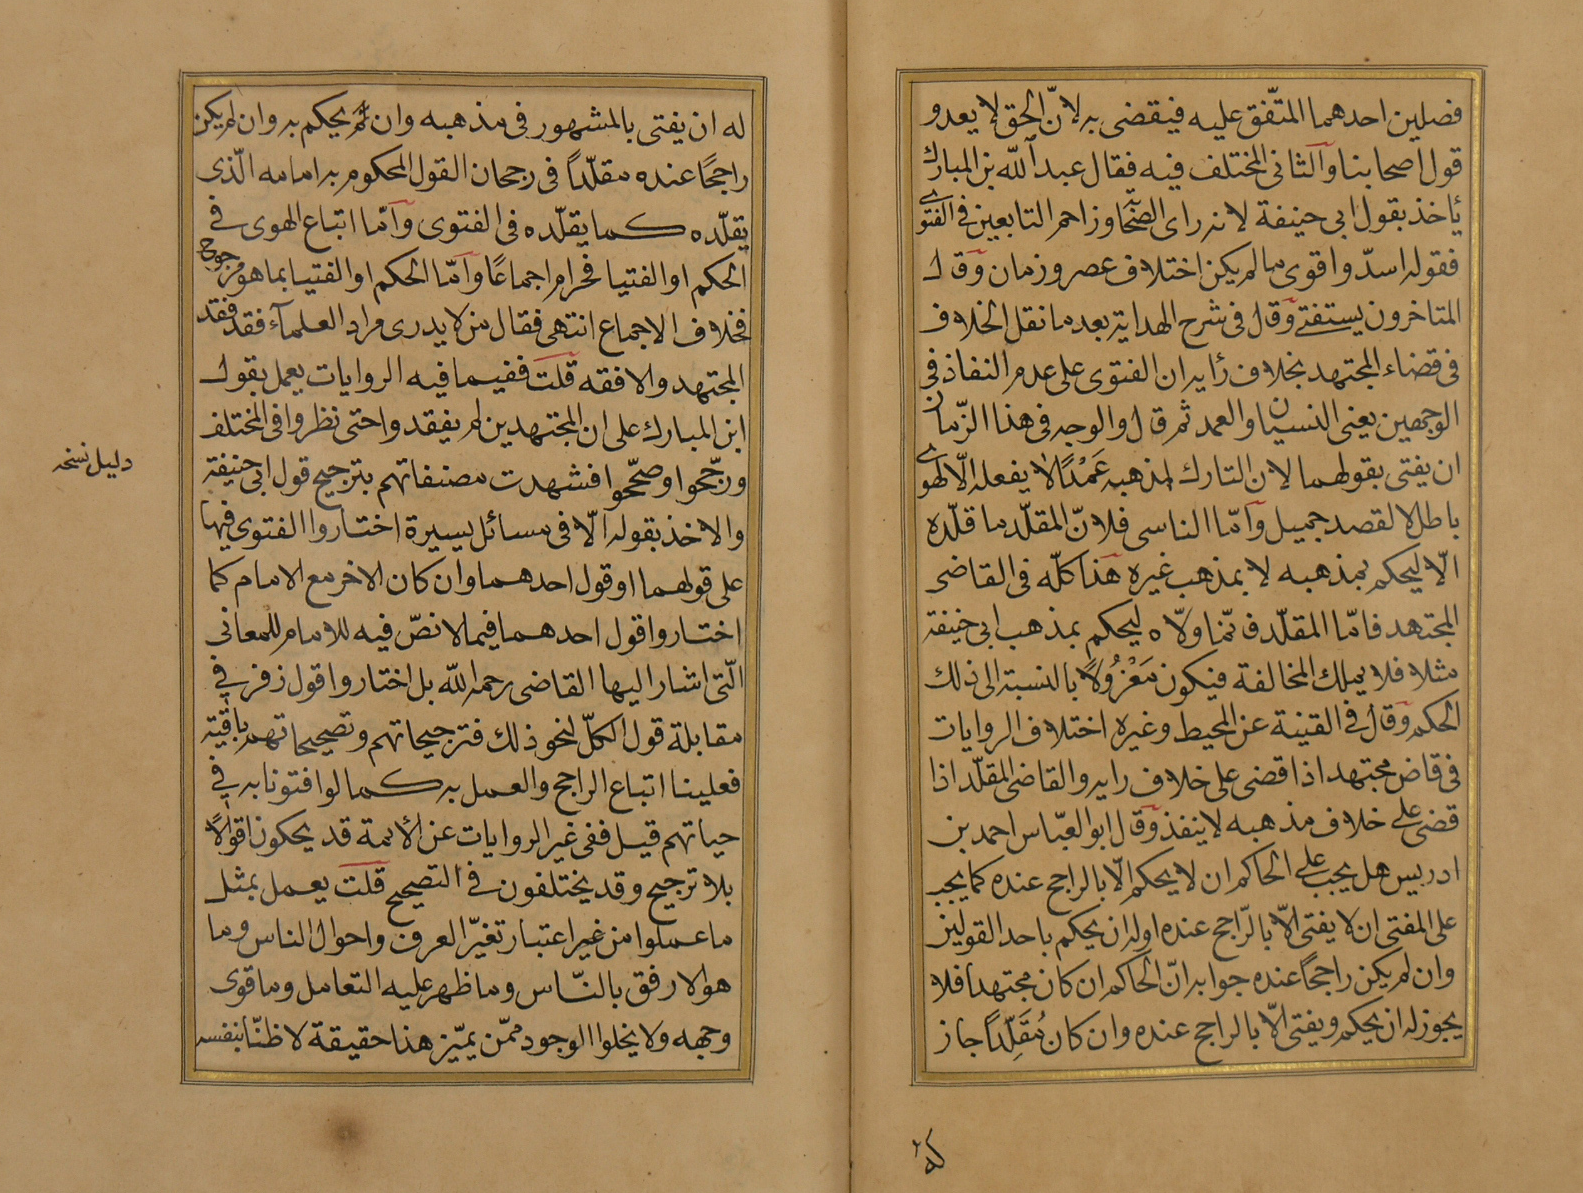 فصلين احدهما المتّفق عليه فيقضى به لانّ الحق لا يعدو
قول اصحابنا والثانى المختلف فيه فقال عبد الله بن المبارك
يأخذ بقول ابى حنيفة لانه راى الصحابة وزاحم التابعين فى الفتوى
فقوله اسدّ واقوى ما لم يكن اختلاف عصر وزمان وقال
المتاخرون يستفتى وقال فى شرح الهداية بعد ما نقل الخلاف
فى قضاء المجتهد بخلاف رأيه ان الفتوى على عدم النفاذ فى
الوجهين يعنى النسيان والعمد ثم قال والوجه فى هذا الزّمان
ان يفتى بقولهما لان التارك لمذهبه عَمْدًا لا يفعله الّا لهوى
باطل لا لقصد جميل وامّا الناسى فلانّ المقلّد ما قلّده
الّا ليحكم بمذهبه لا بمذهب غيره هذا كلّه فى القاضى
المجتهد فامّا المقلّد فانّما ولّاه ليحكم بمذهب ابى حنيفة
مثلا فلا يملك المخالفة فيكون مَعْزُولًا بالنسبة الى ذلك
الحكم وقال فى القنية عن المحيط وغيره اختلاف الروايات
فى قاض مجتهد اذا قضى على خلاف رايه والقاضى المقلّد اذا
قضى على خلاف مذهبه لا ينفذ وقال ابو العبّاس احمد بن
ادريس هل يجب على الحاكم ان لا يحكم الّا بالراجح عنده كما يجب
على المفتى ان لا يفتى الّا بالرّاجح عنده اوله ان يحكم باحد القولين
وان لم يكن راجحًا عنده جوابه انّ الحاكم ان كان مجتهدا فلا
يجوز له ان يحكم ويفتى الّا بالراجح عنده وان كان مُقَلِّدًا جاز
له
له ان يفتى بالمشهور فى مذهبه وان لم يحكم به وان لم يكن
راجحًا عنده مقلّداً فى رجحان القول المحكوم به امامه الّذى
يقلّده كما يقلّده فى الفتوى وامّا اتباع الهوى فى
الحكم او الفتيا فحرام اجماعًا وامّا الحكم او الفتيا بما هو مرجوح
فخلاف الاجماع انتهى فقال من لا يدرى مراد العلمآء فقد فقد
المجتهد والافقه قلت ففيما فيه الروايات يعمل بقول
ابن المبارك على ان المجتهدين لم يفقدوا حتى نظروا فى المختلف
ورجّحوا وصحّحوا فشهدت مصنفاتهم بترجيح قول ابى حنيفة
دليل نسخه
والاخذ بقوله الّا فى مسائل يسيرة اختاروا الفتوى فيها
على قولهما او قول احدهما وان كان الاخر مع الامام كما
اختاروا قول احدهما فيما لا نصّ فيه للامام للمعانى
الّتى اشار اليها القاضى رحمه الله بل اختاروا قول زفر فى
مقابلة قول الكلّ لنحو ذلك فترجيحاتهم وتصحيحاتهم باقية
فعلينا اتباع الراجح والعمل به كما لو افتونا به فى
حياتهم قيل ففى غير الروايات عن الأئمة قد يحكون اقوالًا
بلا ترجيح وقد يختلفون فى التصحيح قلت يعمل بمثل
ما عملوا من غير اعتبار تغيّر العرف واحوال الناس وما
هو الارفق بالنّاس وما ظهر عليه التعامل وما قوى
وجهه ولا يخلوا الوجود ممّن يميّز هذا حقيقة لا ظنّا بنفسه